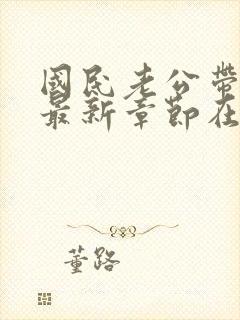 國民老公帶
最新章節在
董路